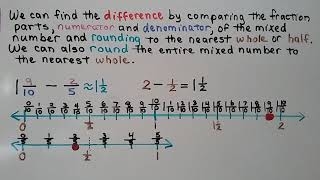 We can find the difference by comparing the fraction
parts, numerator and denominator, of the mixed
number and rounding to the nearest whole or half.
We can also round the entire mixed number to
the nearest whole.
1 9/10 - 2/5 ≈ 1 1/2    2 - 1/2 = 1 1/2
0/10 1/10 2/10 3/10 4/10 5/10 6/10 7/10 8/10 9/10 10/10
0 1/2 1 1 1/2 2
0/5 1/5 2/5 3/5 4/5 5/5
0 1/2 1